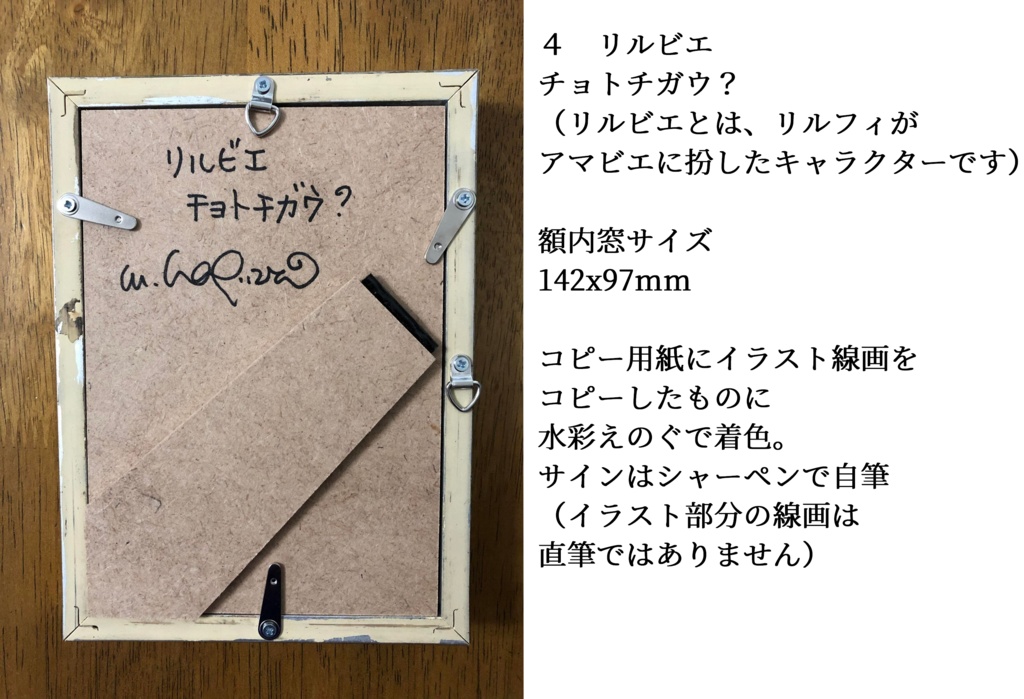 リルビエ
チョトチガウ?
４　リルビエ
チョトチガウ？
（リルビエとは、リルフィが
アマビエに扮したキャラクターです）
額内窓サイズ
142x97mm
コピー用紙にイラスト線画を
コピーしたものに
水彩えのぐで着色。
サインはシャーペンで自筆
（イラスト部分の線画は
直筆ではありません）